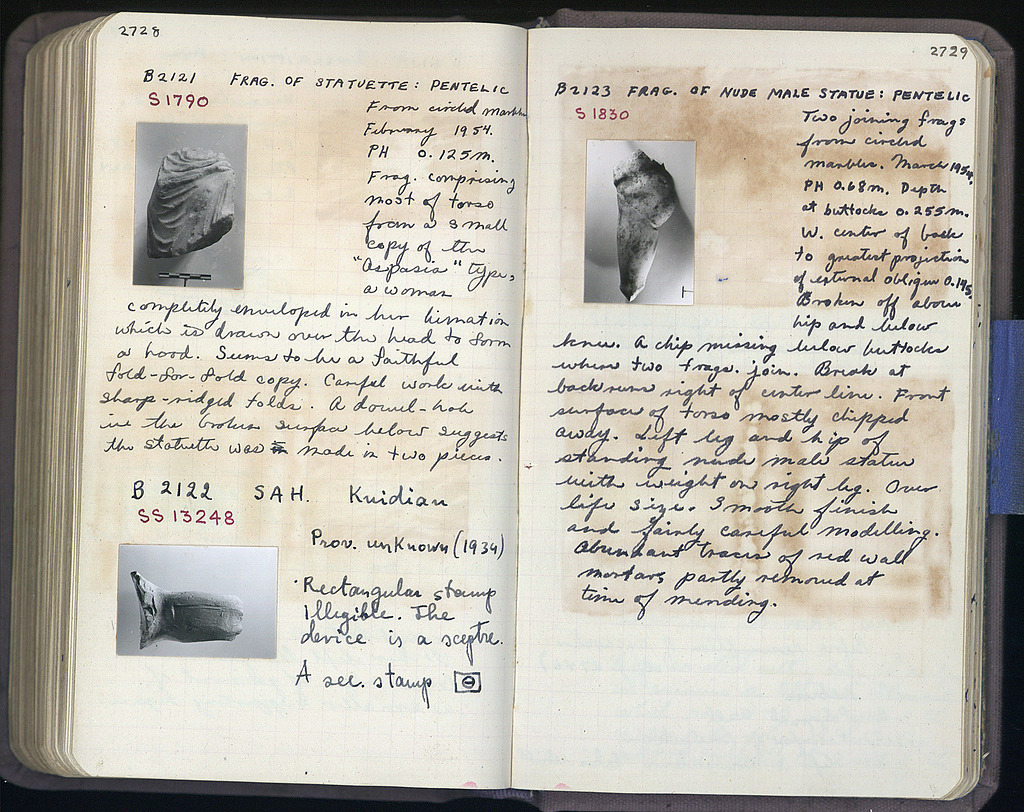 2728
B2121 FRAG. OF STATUETTE: PENTELIC
S 1790
From circled marbles
February 1954.
PH 0.125m.
Frag. comprising
most of torso
from a small
copy of the
"Aspasia" type,
a woman
completely enveloped in her himation
which is drawn over the head to form
a hood. Seems to be a faithful
fold-for-fold copy. Careful work with
sharp-ridged folds. A dowel-hole
in the broken surface below suggests
the statuette was made in two pieces.
B 2122 SAH. Knidian
SS 13248
Prov. unknown (1934)
Rectangular stamp
illegible. The
device is a sceptre.
A sec. stamp Θ
2729
B2123 FRAG. OF NUDE MALE STATUE: PENTELIC
S 1830
Two joining frags
from circled
marbles. March 1954.
PH 0.68m. Depth
at buttocks 0.255m.
W. center of back
to greatest projection
of external oblique 0.195.
Broken off above
hip and below
knee. A chip missing below buttocks
where two frags. join. Break at
back runs right of center line. Front
surface of torso mostly chipped
away. Left leg and hip of
standing nude male statue
with weight on right leg. Over
life size. Smooth finish
and fairly careful modelling.
Abundant traces of red wall
mortar, partly removed at
time of mending.